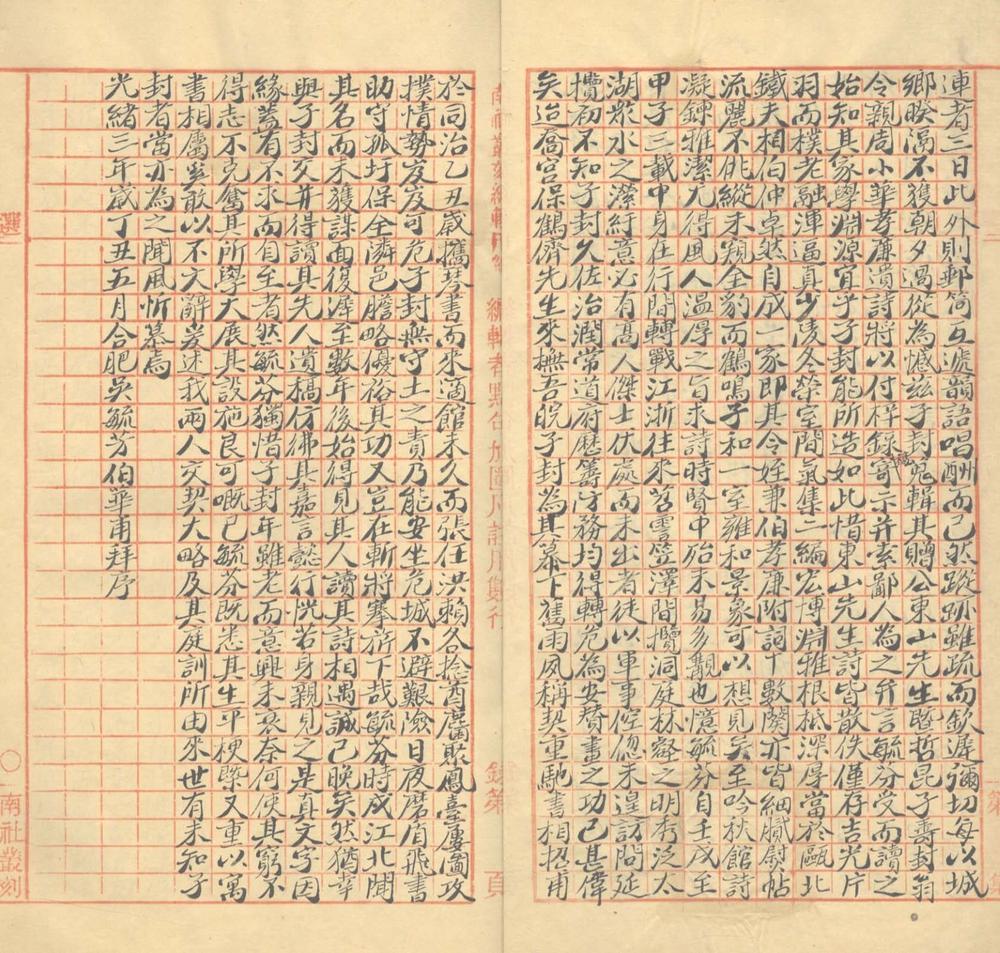 連者三日此外則郵筒互遞韻語唱酬而已然蹤跡雖疏而欽遲彌切每以城
鄉暌隔不獲朝夕過從為憾茲子封兄輯其贈公東山先生暨哲昆子壽封翁
令親周小華孝廉遺詩將以付梓錄稿寄示并索鄙人為之弁言毓芬受而讀之
始知其家學淵源宜乎子封能所造如此惜東山先生詩皆散佚僅存吉光片
羽而樸老融渾逼真少陵冬榮室閒氣集二編宏博淵雅根柢深厚當於甌北
鐵夫相伯仲卓然自成一家即其令姪兼伯孝廉附詞十數闋亦皆細膩熨帖
流麗不佻縱未窺全豹而鶴鳴子和一室雍和景象可以想見矣至吟秋館詩
凝鍊雅潔尤得風人溫厚之旨求詩時賢中殆未易多覯也憶毓芬自壬戌至
甲子三載中身在行間轉戰江浙往來苕霅笠澤間攬洞庭林壑之明秀泛太
湖眾水之瀠紆意必有高人傑士伏處而未出者徒以軍事倥傯未遑訪問延
攬初不知子封久佐治潤常道府歷籌防務均得轉危為安贊畫之功已甚偉
矣迨喬宮保鶴儕先生來撫吾皖子封為其幕下舊雨夙稱契重馳書相招甫
於同治乙丑歲攜琴書而來適館未久而張任洪賴各捻酋麕聚鳳臺屢圖攻
撲情勢岌岌可危子封無守土之責乃能安坐危城不避艱險日夜磨盾飛書
助守孤圩保全潾邑膽略優裕其功又豈在斬將搴旂下哉毓芬時戍江北聞
其名而未獲謀面復遲至數年後始得見其人讀其詩相遇誠已晚矣然猶幸
與子封交并得讀其先人遺稿仿彿其嘉言懿行恍若身親見之是真文字因
緣蓋有不求而自至者然毓芬獨惜子封年雖老而意興未衰奈何使其窮不
得志不克奮其所學大展其設施良可嘅已毓芬既悉其生平梗槩又重以寓
書相屬豈敢以不文辭爰述我兩人交契大略及其庭訓所由來世有未知子
封者當亦為之聞風忻慕焉
光緒三年歲丁丑五月合肥吳毓芬伯華甫拜序
選
南社叢刻
編輯者點名加圈凡註用雙行
錄第
頁